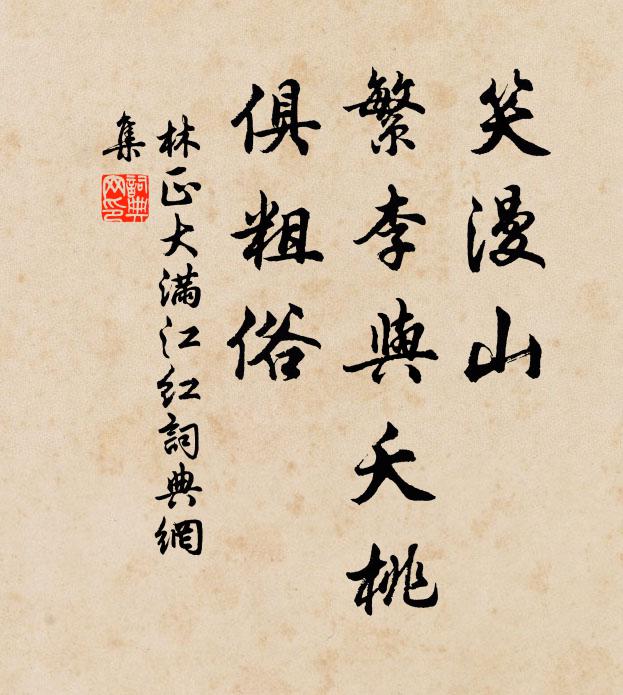 笑漫山
繁李與夭桃
俱粗俗
林正大滿江紅詞典網
集
詞典网印